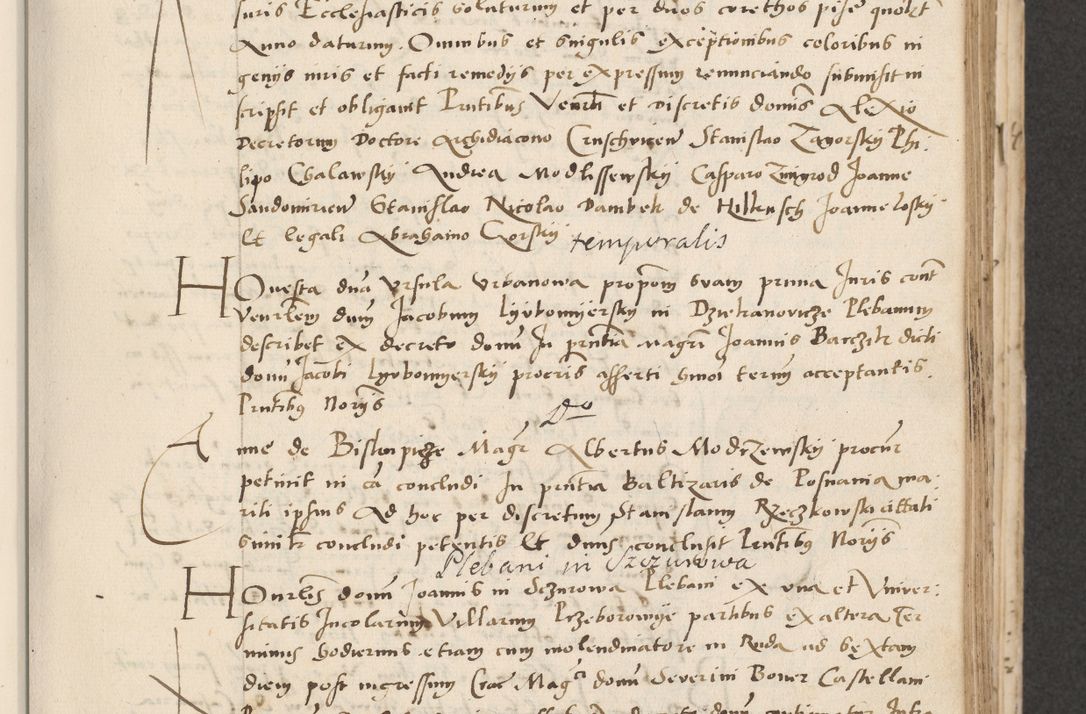 Juris Ecclesiasticis volaturum et per duos corethos pise quolt
Anno daturum. Omnibus et singulis exceptionibus coloribus in
genijs iuris et facti remedijs per expressum renunciando submisit in
scripsit et obligavit Pntibus Venrli et discretis domis Alexio
Decretorum Doctore Archidiacono Cruschvicen Stanislao Zagorskij Phi,
lipo Chalawskij Andrea Modlissewskij Casparo Zmigrod Joanne
Sandomirien Stanislao Nicolao Dambek de Hilkusch Joanne loskij
Et legali Abrahamo Gorskij
temporalis
Honesta dna Vrsula Vrbanowa propom suam prima Juris cont
Venrlem dnm Jacobum Lijubomijerskij in Dziekanovicze Plebanum
describet ex decreto domi In pntia magri Joannis Barczik dicti
domi Jacobi Lijubomijerskij procris asserti smoi termi acceptantis.
Pntibus Norijs
Do
Anne de Biskupicze Magr Albertus Modczewskij procur
petivit in ca concludi In pntia Baltizaris de Posnania ma,
riti ipsius Ad hoc per discretum Stanislaum Rzeczkowski citati
simitr concludi petentis Et dnus conclusit Pntibus Norijs
Plebani in Szczurowa
Honrlis domi Joannis in Sczurowa Plebani ex una et Univer,
sitatis Incolarum Villarum Przeborowije partibus ex altera Ter
minus hodiernus etiam cum molendinatore in Ruda ad sextam
diem post ingressum Crac Magci domi Severini Boner Castellani